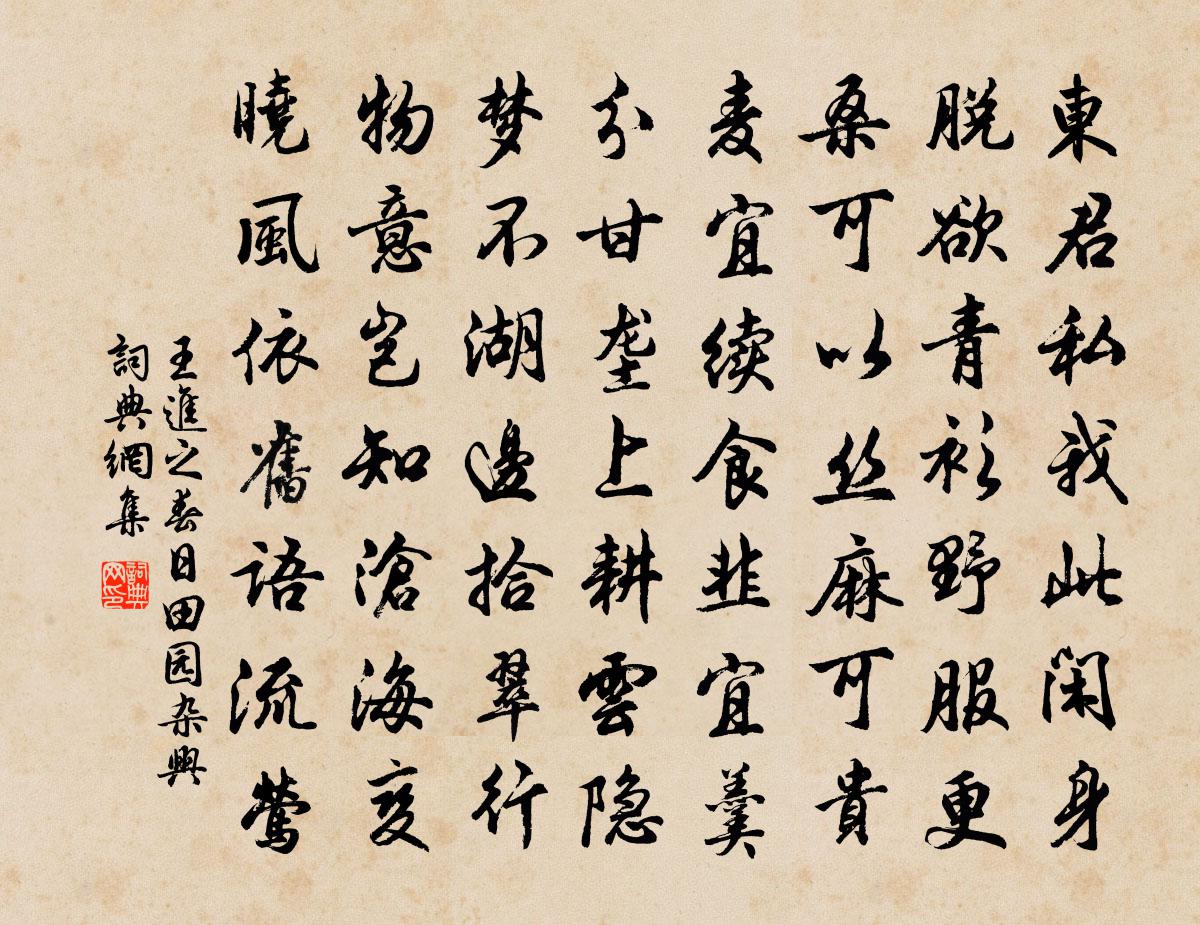 東君私我此閑身
脱欲青衫野服更
桑可以丝麻可貴
麦宜续食韭宜羹
分甘垄上耕雲隐
梦不湖邊拾翠行
物意岂知滄海变
曉風依舊語流鶯
王進之春日田园杂興
詞典網集
詞典网印